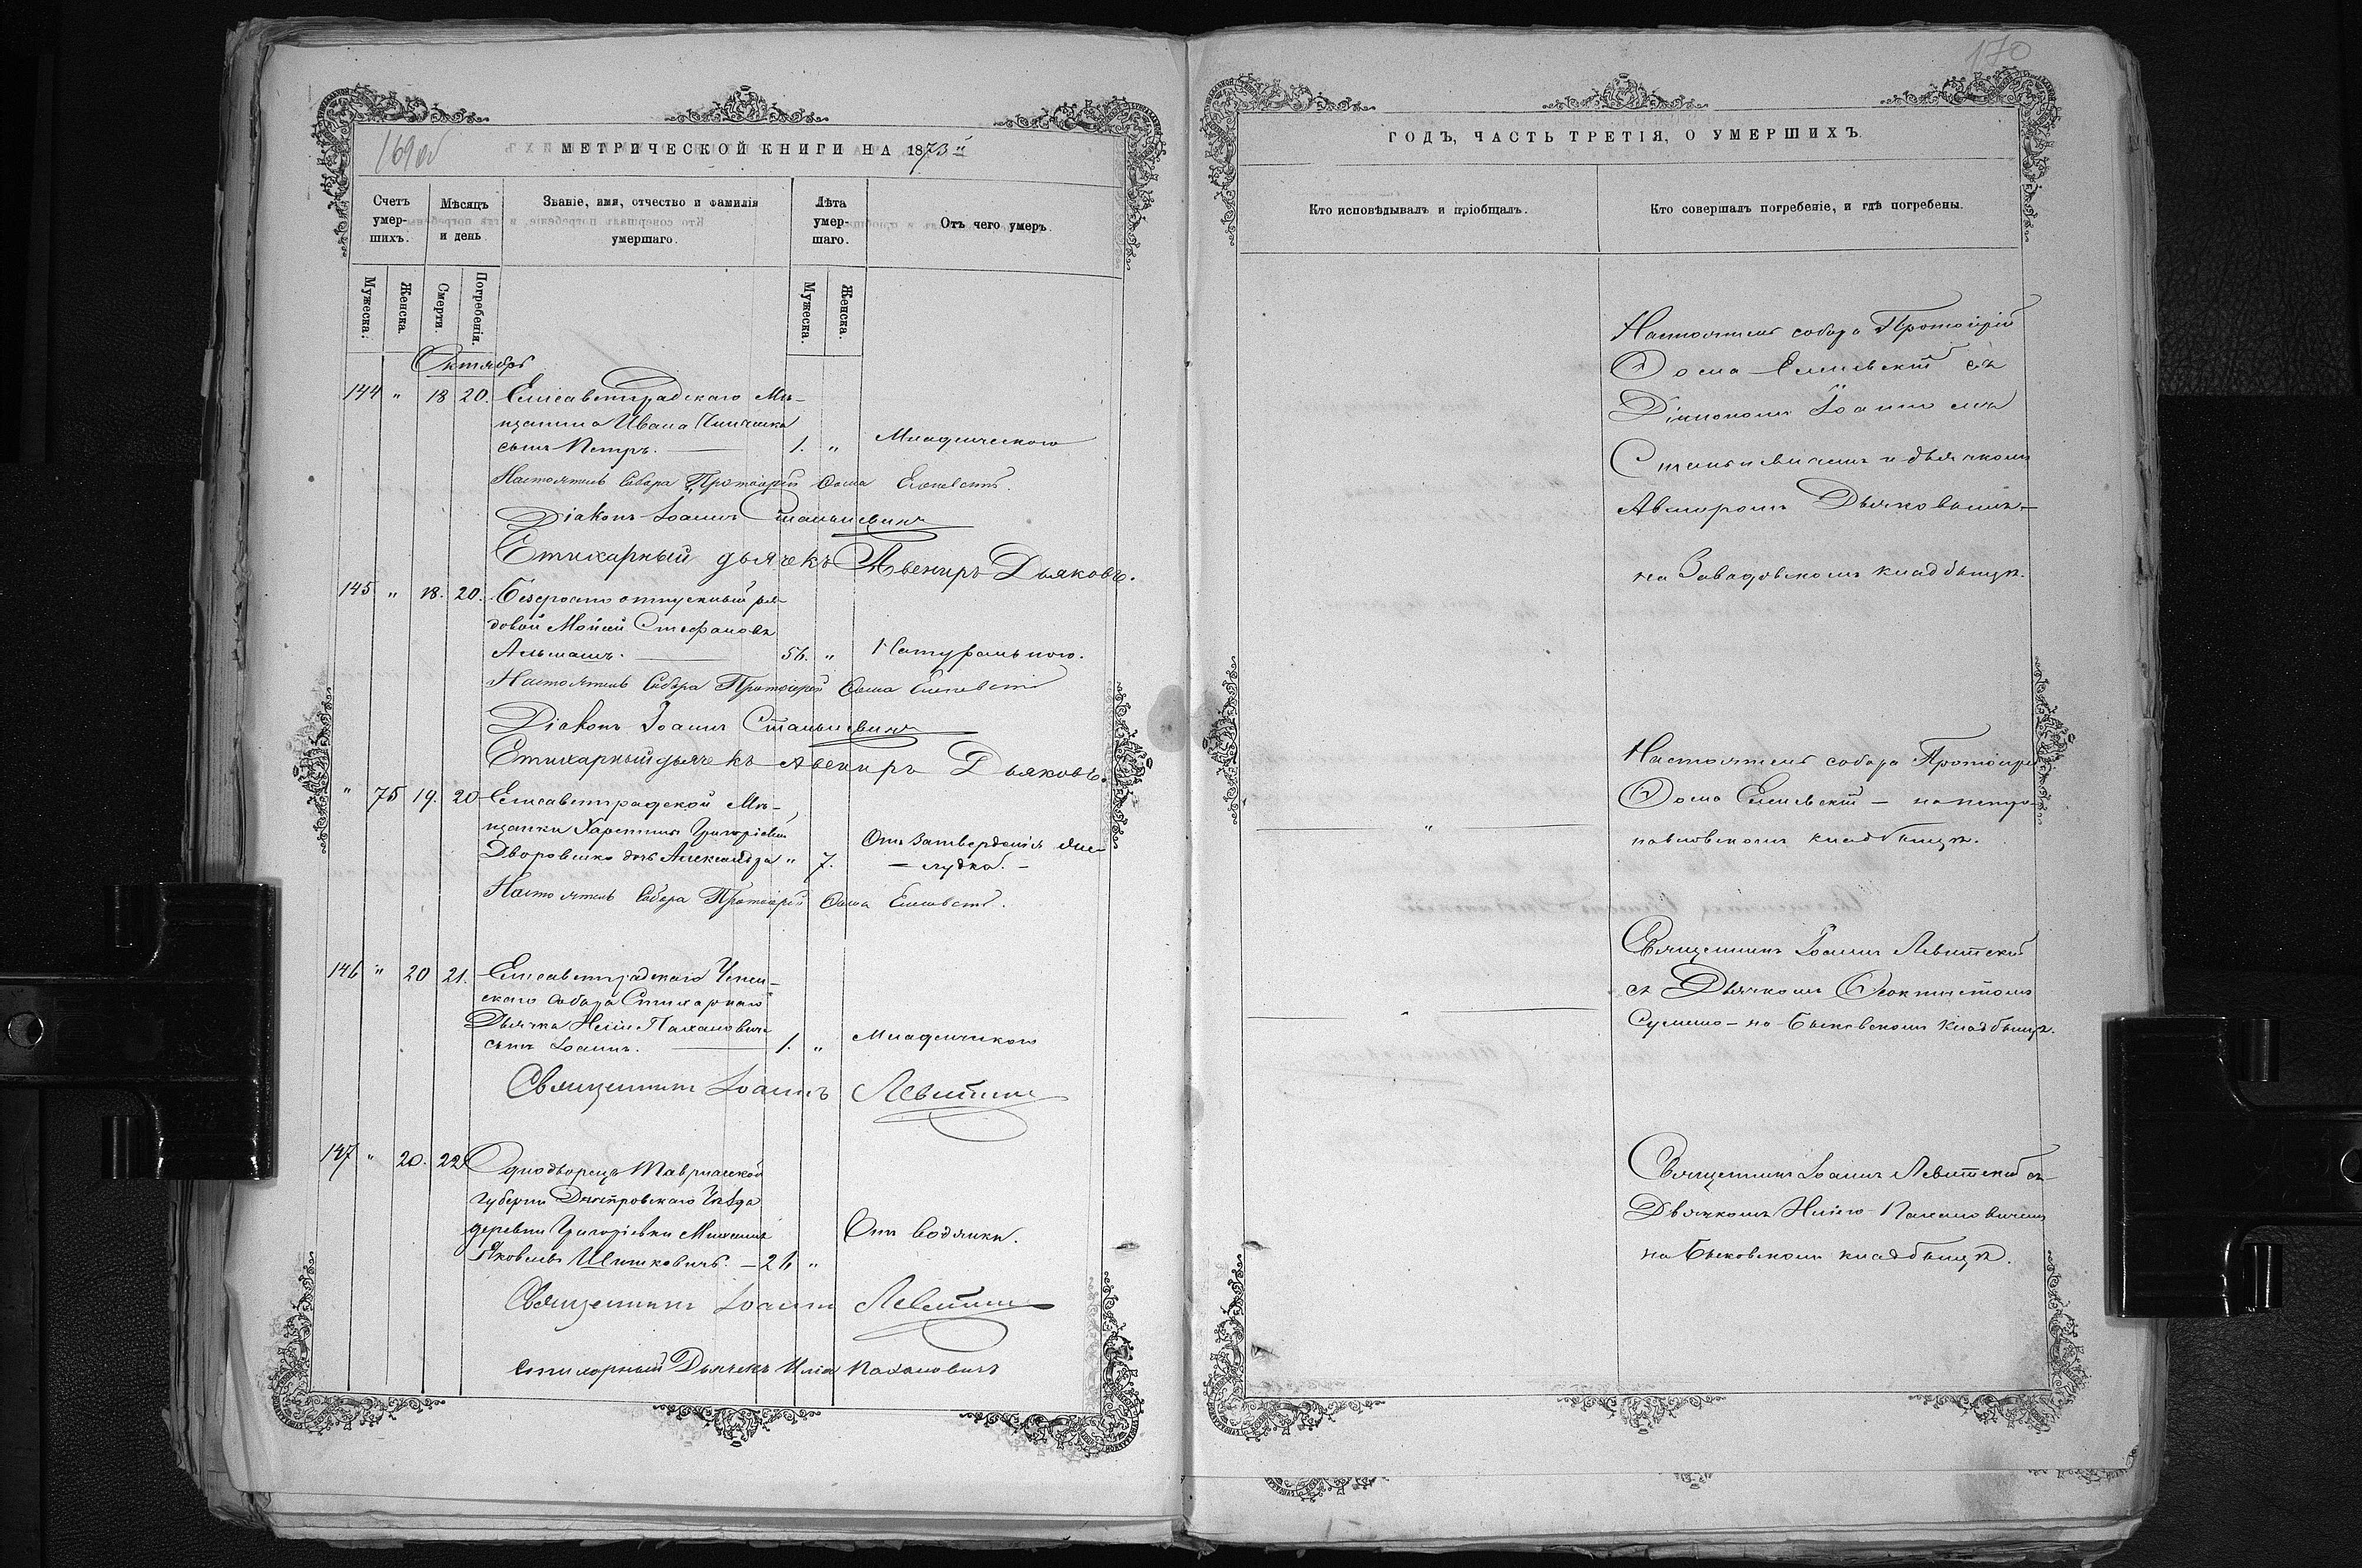 169об
МЕТРИЧЕСКОЙ КНИГИ НА 1873й
Счетъ умер-шихъ.
Мѣсяцъ и день
Званіе, имя, отчество и фамилія умершаго.
Лѣта умер-шаго.
Отъ чего умеръ
Мужеска.
Женска.
Смерти.
Погребенія.
Мужеска.
Женска.
Октябрь
144 " 18 20. Елисаветградскаго Мѣ-
щанина Ивана
сынъ Петръ. — 1. " Младенческаго
Настоятель Собора Протоіерей Ѳома
Діаконъ Іоаннъ Станкевичъ
Стихарный дьячекъ Авениръ Дьяковъ.
145 " 18. 20. Безсрочно отпускный ря-
довой Моисей Стефановъ
56. " Натурального.
Настоятель Собора Протоіерей Ѳома
Діаконъ Іоаннъ Станкевичъ
Стихарный дьячекъ Авениръ Дьяковъ.
" 75 19. 20 Елисаветградской Мѣ-
щанки Харитины Григоріевой
дочь Александра " 7. Отъ затвердѣнія же-
— лудка. —
Настоятель Собора Протоіерей Ѳома
146 " 20 21. Елисаветградскаго Успен-
скаго Собора Стихарнаго
Дьячка Иліи Пахановича
сынъ Іоаннъ. — 1. " Младенческаго
Священникъ Іоаннъ Левитскій
147 " 20. 22 Однодворецъ Таврической
Губерніи Днѣпровскаго Уѣзда
деревни Григорьевки Михаилъ
Яковлевъ — 26 " Отъ водянки.
Священникъ Іоаннъ Левитскій
Стихарный Дьячекъ Илія Пахановичъ
170
ГОДЪ, ЧАСТЬ ТРЕТІЯ, О УМЕРШИХЪ.
Кто исповѣдывалъ и пріобщалъ.
Кто совершалъ погребеніе, и гдѣ погребены.
Настоятель собора Протоіерей
Ѳома съ
Діакономъ Іоанномъ
Станкевичемъ и дьячкомъ
Авениромъ Дьяковымъ —
на Завадовскомъ кладбищѣ.
Настоятель собора Протоіерей
Ѳома — на петро-
" павловскомъ кладбищѣ.
Священникъ Іоаннъ Левитскій
съ Дьячкомъ Ѳеоктистомъ
на Быковскомъ кладбищѣ.
Священникъ Іоаннъ Левитскій съ
Дьячкомъ Иліею Пахановичемъ
на Быковскомъ кладбищѣ.